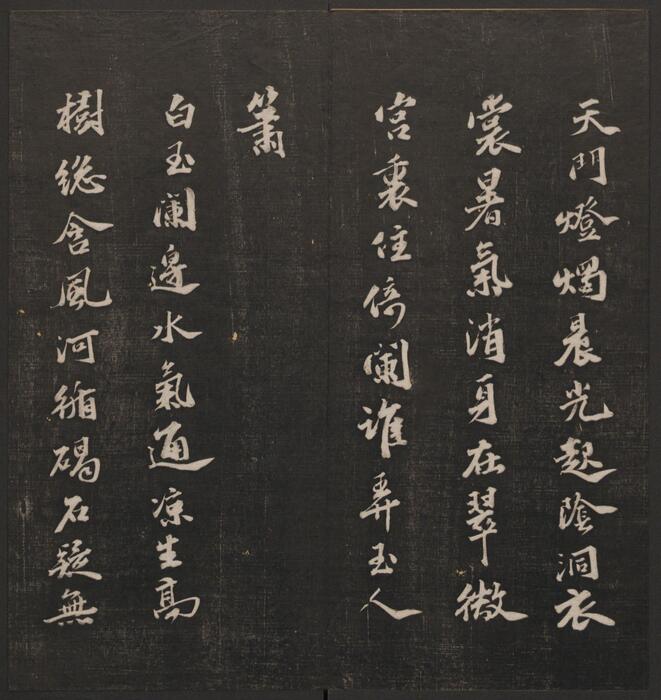 天門燈燭晨光起陰洞衣
裳暑氣消身在翠微
宮裏住倚闌誰弄玉人
簫
白玉闌邊水氣通涼生高
樹總含風河循碣石疑無